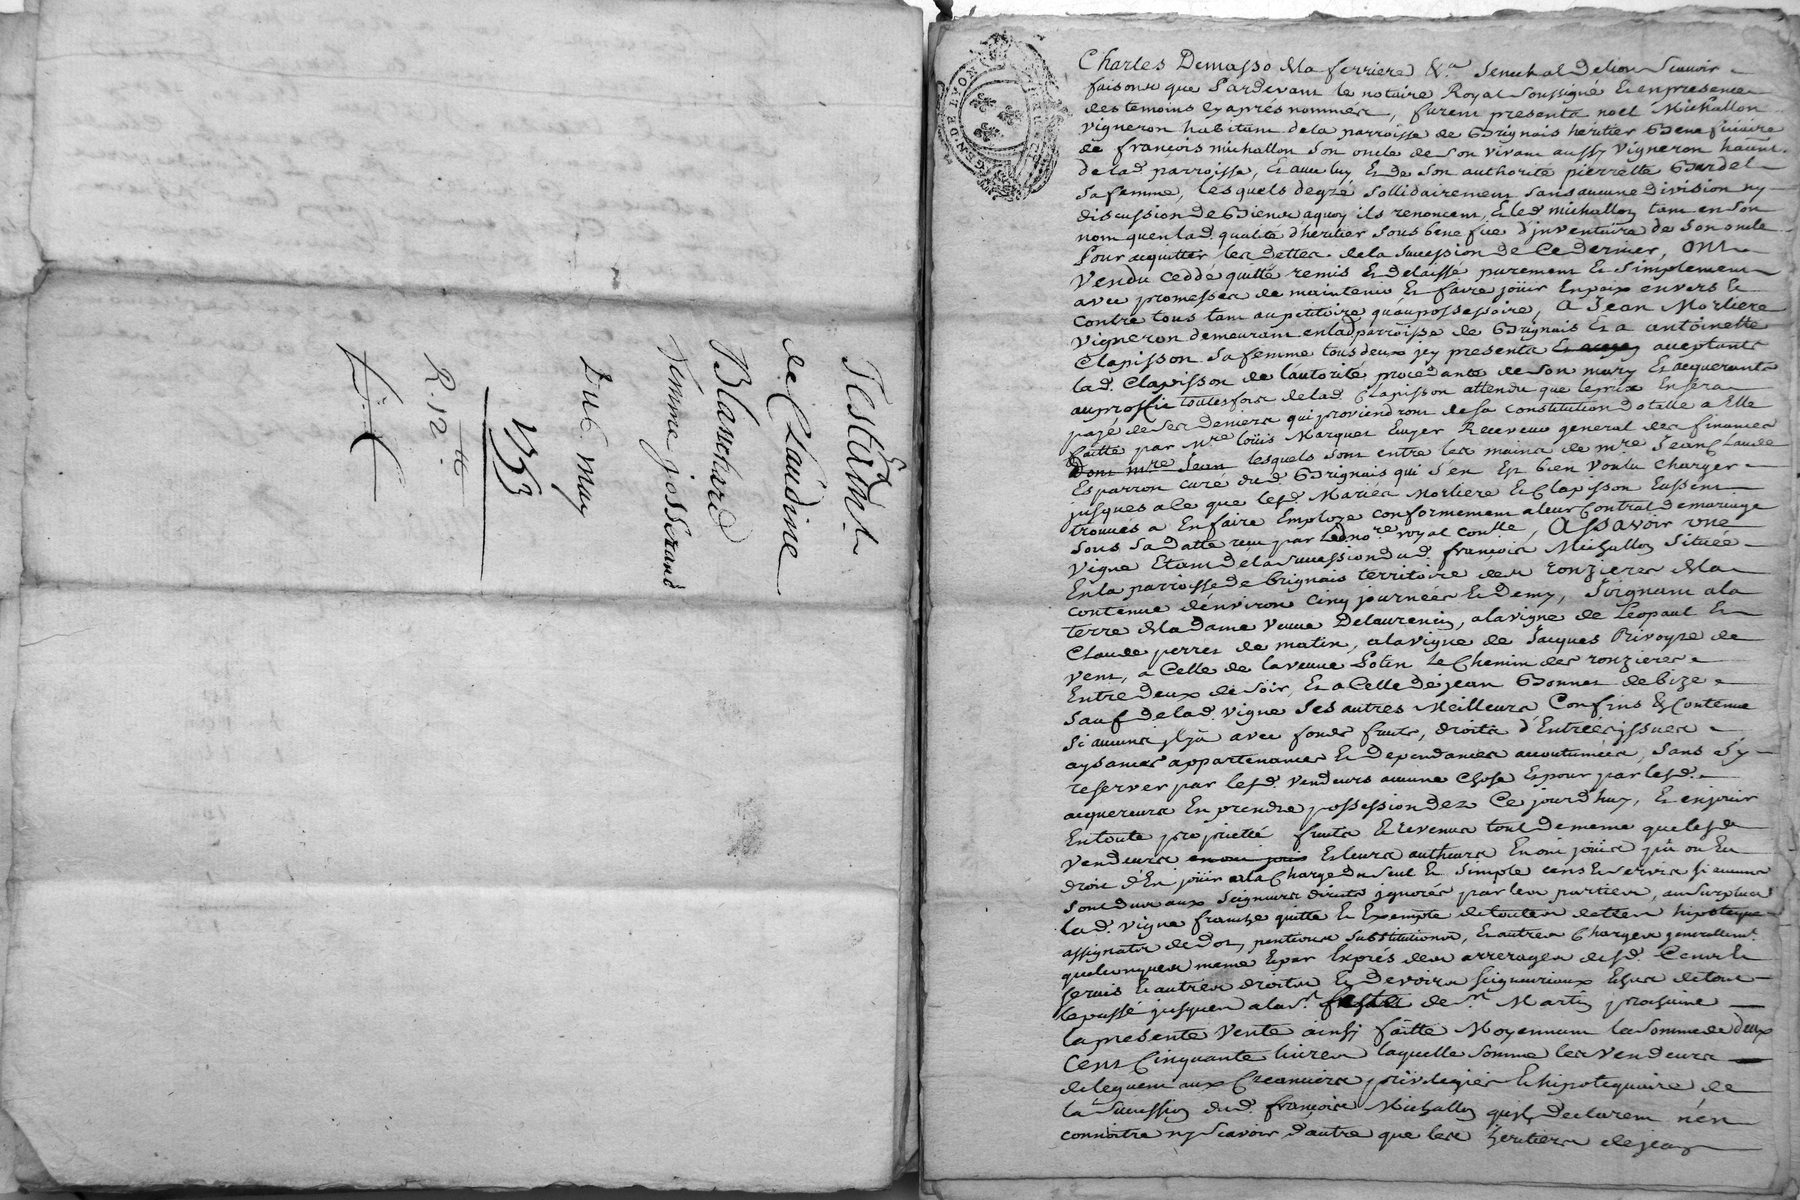 Testam.t
de Claudine
Blanchard
femme josserand
Du 6. may
1753
R. 12 tt
GEN. DE LYON
Charles Demasso de la ferriere &.a Senechal de lion scavoir
faisons que Pardevant le notaire Royal soussigné & en presence
des temoins cy aprés nommés, furent presents noel Michallon
vigneron habitant de la parroisse de Brignais héritier Beneficiaire
de françois michallon son oncle de son vivant aussy vigneron habit.
de lad. parroisse, Et avec luy, & de son authorité pierrette Bardel
sa femme, lesquels de gré sollidairement sans aucune division ny
discussion de Biens aquoy ils renoncent, & led. michallon tant en son
nom quen lad. qualité d'héritier sous benefice d'jnventaire de son oncle
Pour acquitter les dettes de la succession de ce dernier, ont
Vendu ceddé quitté remis & delaissé purement & simplement
avec promesses de maintenir & faire joüir en paix envers &
contre tous tant au petitoire qu'au possessoire, A Jean Morliere
vigneron demeurant en lad parroisse de Brignais & a antoinette
Clapisson sa femme tous deux jcy presents acceptants
lad. Clapisson de l'autorité procedante de son mary & acquerants
au proffit touttefois de lad Clapisson attendu que le prix en sera
payé de ses deniers qui proviendront de sa constitution dotalle a Elle
faitte par Mre loüis Marquet Ecuyer Receveur general des finances
dont mre Jean lesquels sont entre les mains de mre Jean Claude
Esparron curé dud. Brignais qui s'en est bien voulu charger
jusques a ce que lesd. Mariés Morliere & Clapisson eussent
trouvés a En faire Employe conformement a leur Contrat de mariage
sous sa datte reçu par led no.re royal, Assavoir une
vigne Etant de la succession dud. françois Michallon située
En la parroisse de brignais territoire des ronzieres de la
contenue d'environ cinq journées & Demy, joignant a la
terre de la Dame veuve Delaurencin, a la vigne de Leopaul &
Claude perret de matin, a la vigne de Jacques Rivoyre de
vent, a Celle de la veuve Potin le Chemin des ronzieres
Entre deux de soir, & a Celle de jean Bonnet de bize
sauf de lad. vigne ses autres Meilleurs Confins & Contenue
si aucuns jl y a avec fonds fruits, droits d'Entrées jssues
aysances appartenances & dependances accoutumées, sans s'y
reserver par lesd. vendeurs aucune chose & pour par lesd.
acquereurs En prendre possession dez ce jourd'huy, & en jouir
En toute proprieté fruits & revenus tout de meme que lesd
vendeurs & leurs autheurs En ont joüis pû ou dû
droit d'En joüir a la Charge du seul & simple cens & servis si aucuns
sont dus aux seigneurs directs jgnorés par les parties, au surplus
lad. vigne franche quitte & Exempte de toutes dettes hipoteques
assignats de dot, pentions substitutions, & autres Charges generallemt.
quelconques meme & par Exprés des arrerages desd. Cens &
servis & autres droits & devoirs seigneuriaux Echus de tout
le passé jusques a la st. feste de st. Martin prochaine
la presente vente ainsi faitte Moyennant la somme de deux
Cent Cinquante livres laquelle somme les vendeurs
deleguent aux Creanciers privilegiés & hipotequaire de
la succession dud. françois Michallon quils declarent n'en
connoitre ny scavoir d'autre que les heritiers de jean